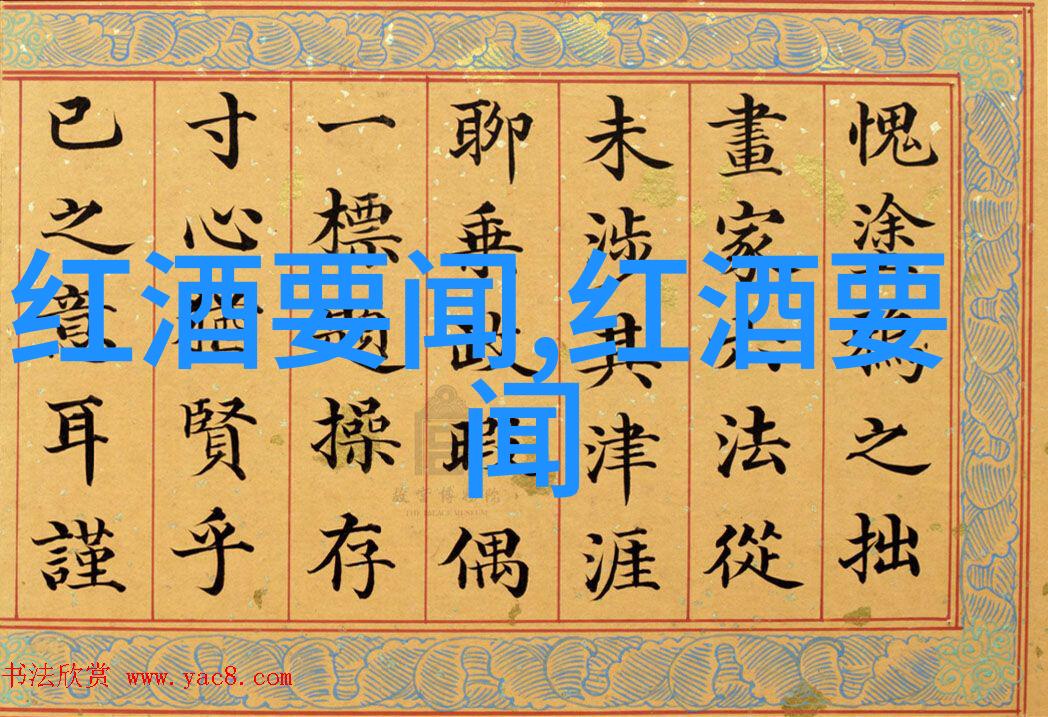 愧塗之拙
畫家法從
未涉其津涯
聊乘政暇偶
一標操存
寸心賢乎
已之意耳謹
红酒要闻,红酒要
闻
故宫博物院
THE PALACE MUSEUM
书法欣赏 www.yac8.com